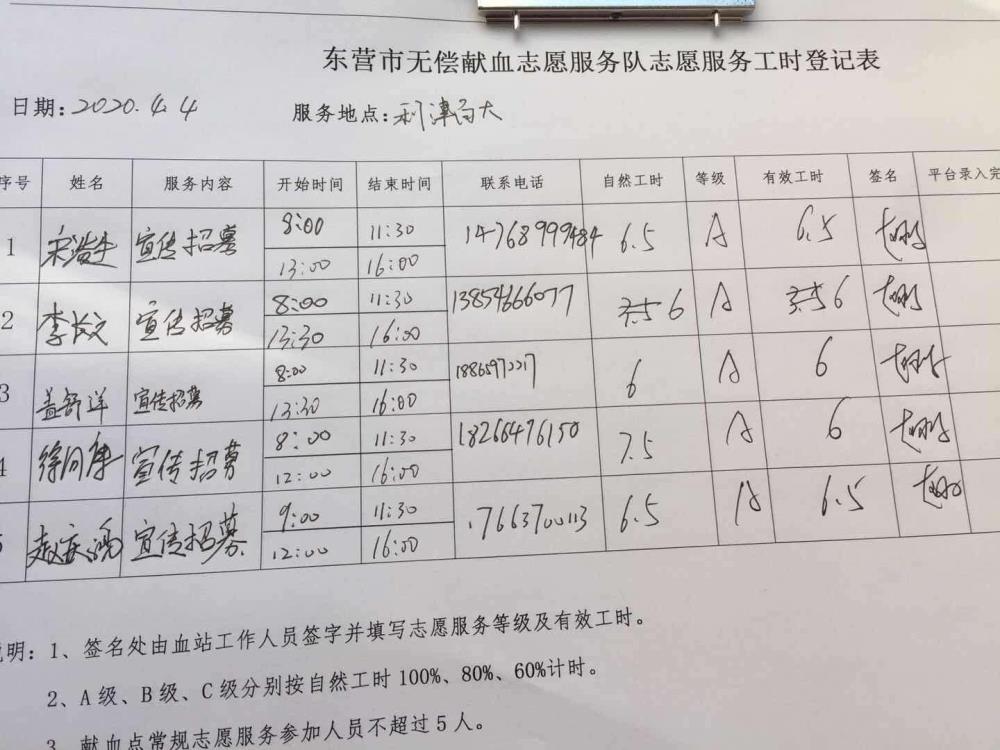 东营市无偿献血志愿服务队志愿服务工时登记表
日期:2020.4.4 服务地点:利津
序号 姓名 服务内容 开始时间 结束时间 联系电话 自然工时 等级 有效工时 签名 平台录入完
1 宣传招募 8:00 11:30 14768999484 6.5 A 6.5
13:00 16:00
2 李长文 宣传招募 8:00 11:30 13854666077 6 A 6
13:30 16:00
3 盖舒洋 宣传招募 8:00 11:30 6 A 6
13:30 16:00
4 宣传招募 8:00 11:30 18266476150 7.5 A 6
12:00 16:00
5 赵庆鸿 宣传招募 9:00 11:30 17663700113 6.5 A 6.5
12:00 16:00
说明:1、签名处由血站工作人员签字并填写志愿服务等级及有效工时。
2、A级、B级、C级分别按自然工时100%、80%、60%计时。
3、献血点常规志愿服务参加人员不超过5人。